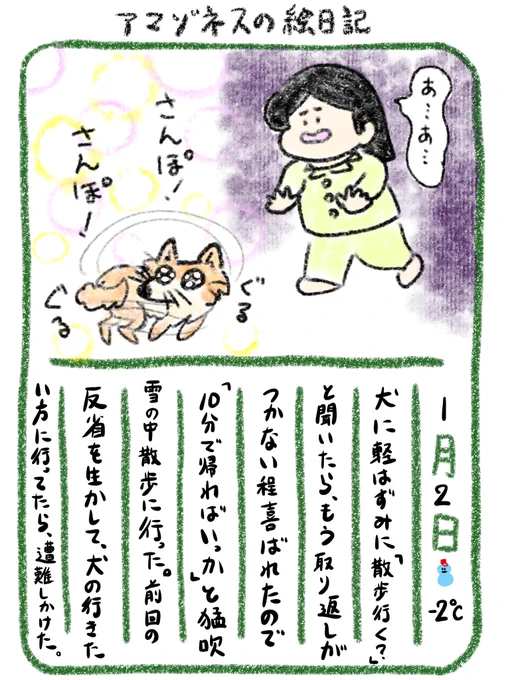 アマゾネスの絵日記
あ…あ…
さんぽ!
さんぽ!
ぐる
ぐる
1月2日
-2℃
犬に軽はずみに、「散歩行く?」
と聞いたら、もう取り返しが
つかない程喜ばれたので
「10分で帰ればいっか」と猛吹
雪の中散歩に行った。前回の
反省を生かして、犬の行きた
い方に行ってたら、遭難しかけた。